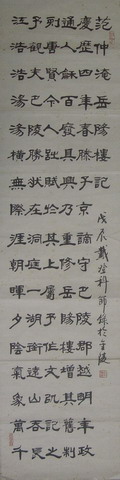 范仲淹岳陽樓記
慶歷四年春滕子京謫守巴陵郡越明年政
通人龢百廢具興乃重修岳陽樓增其舊制
刻唐賢今人詩賦於其上屬予作文以記之
予觀夫巴陵勝狀在洞庭一湖銜遠山吞長
江浩浩湯湯橫無際涯朝暉夕陰氣象萬千
戊辰戴